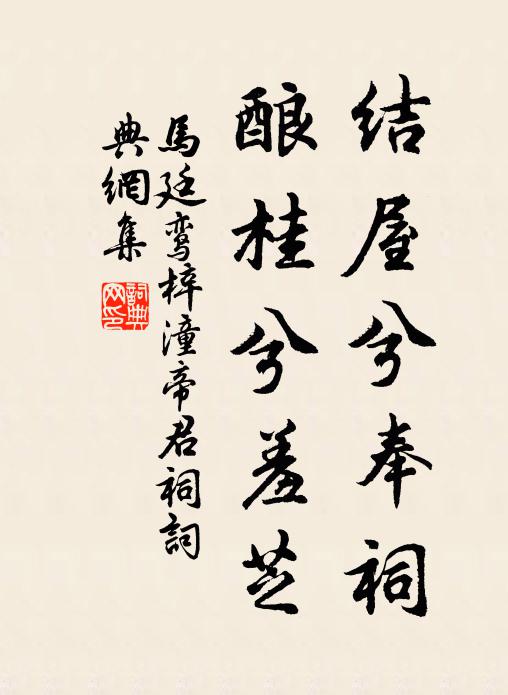 结屋兮奉祠
酿桂兮羞芝
馬廷鸾梓潼帝君祠詞
典網集
詞典网印